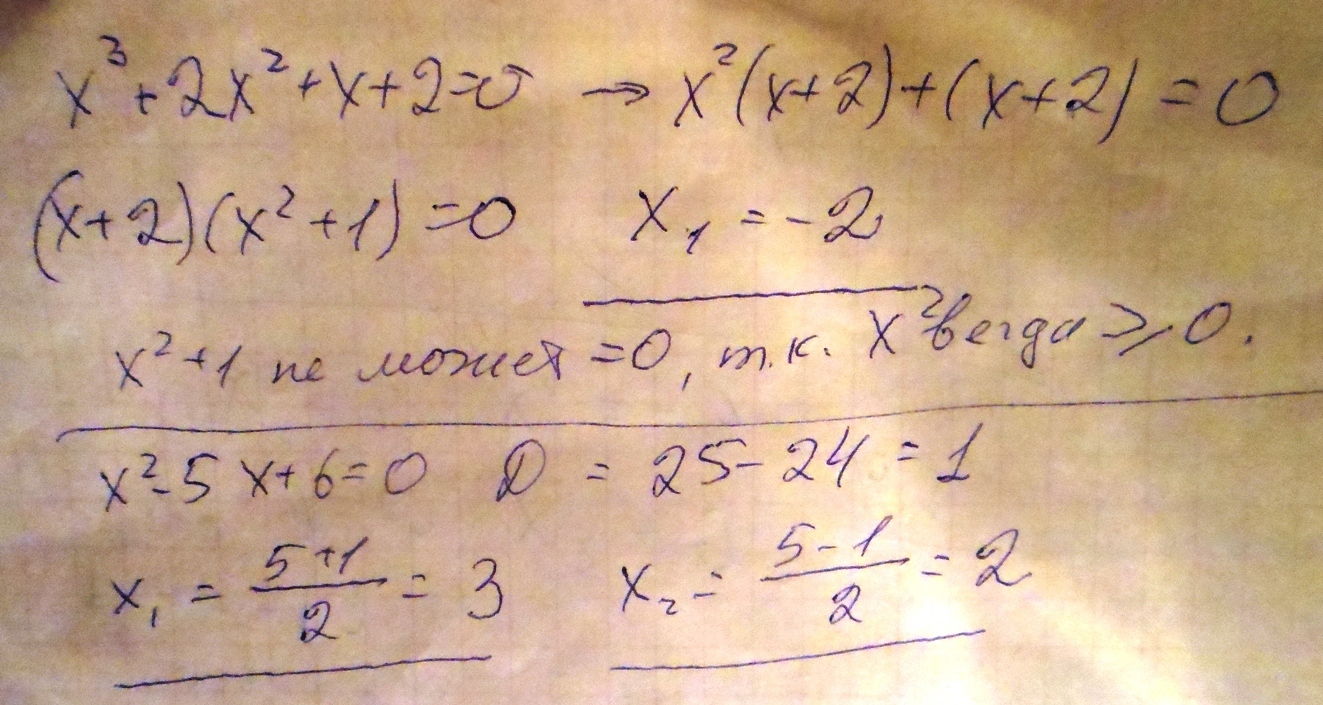 x³+2x²+x+2=0 → x²(x+2)+(x+2)=0
(x+2)(x²+1)=0 x₁=-2
x²+1 не может =0, т.к. x² всегда ≥0.
x²-5x+6=0 D = 25-24=1
x₁ = (5+1)/2 = 3 x₂ = (5-1)/2 = 2